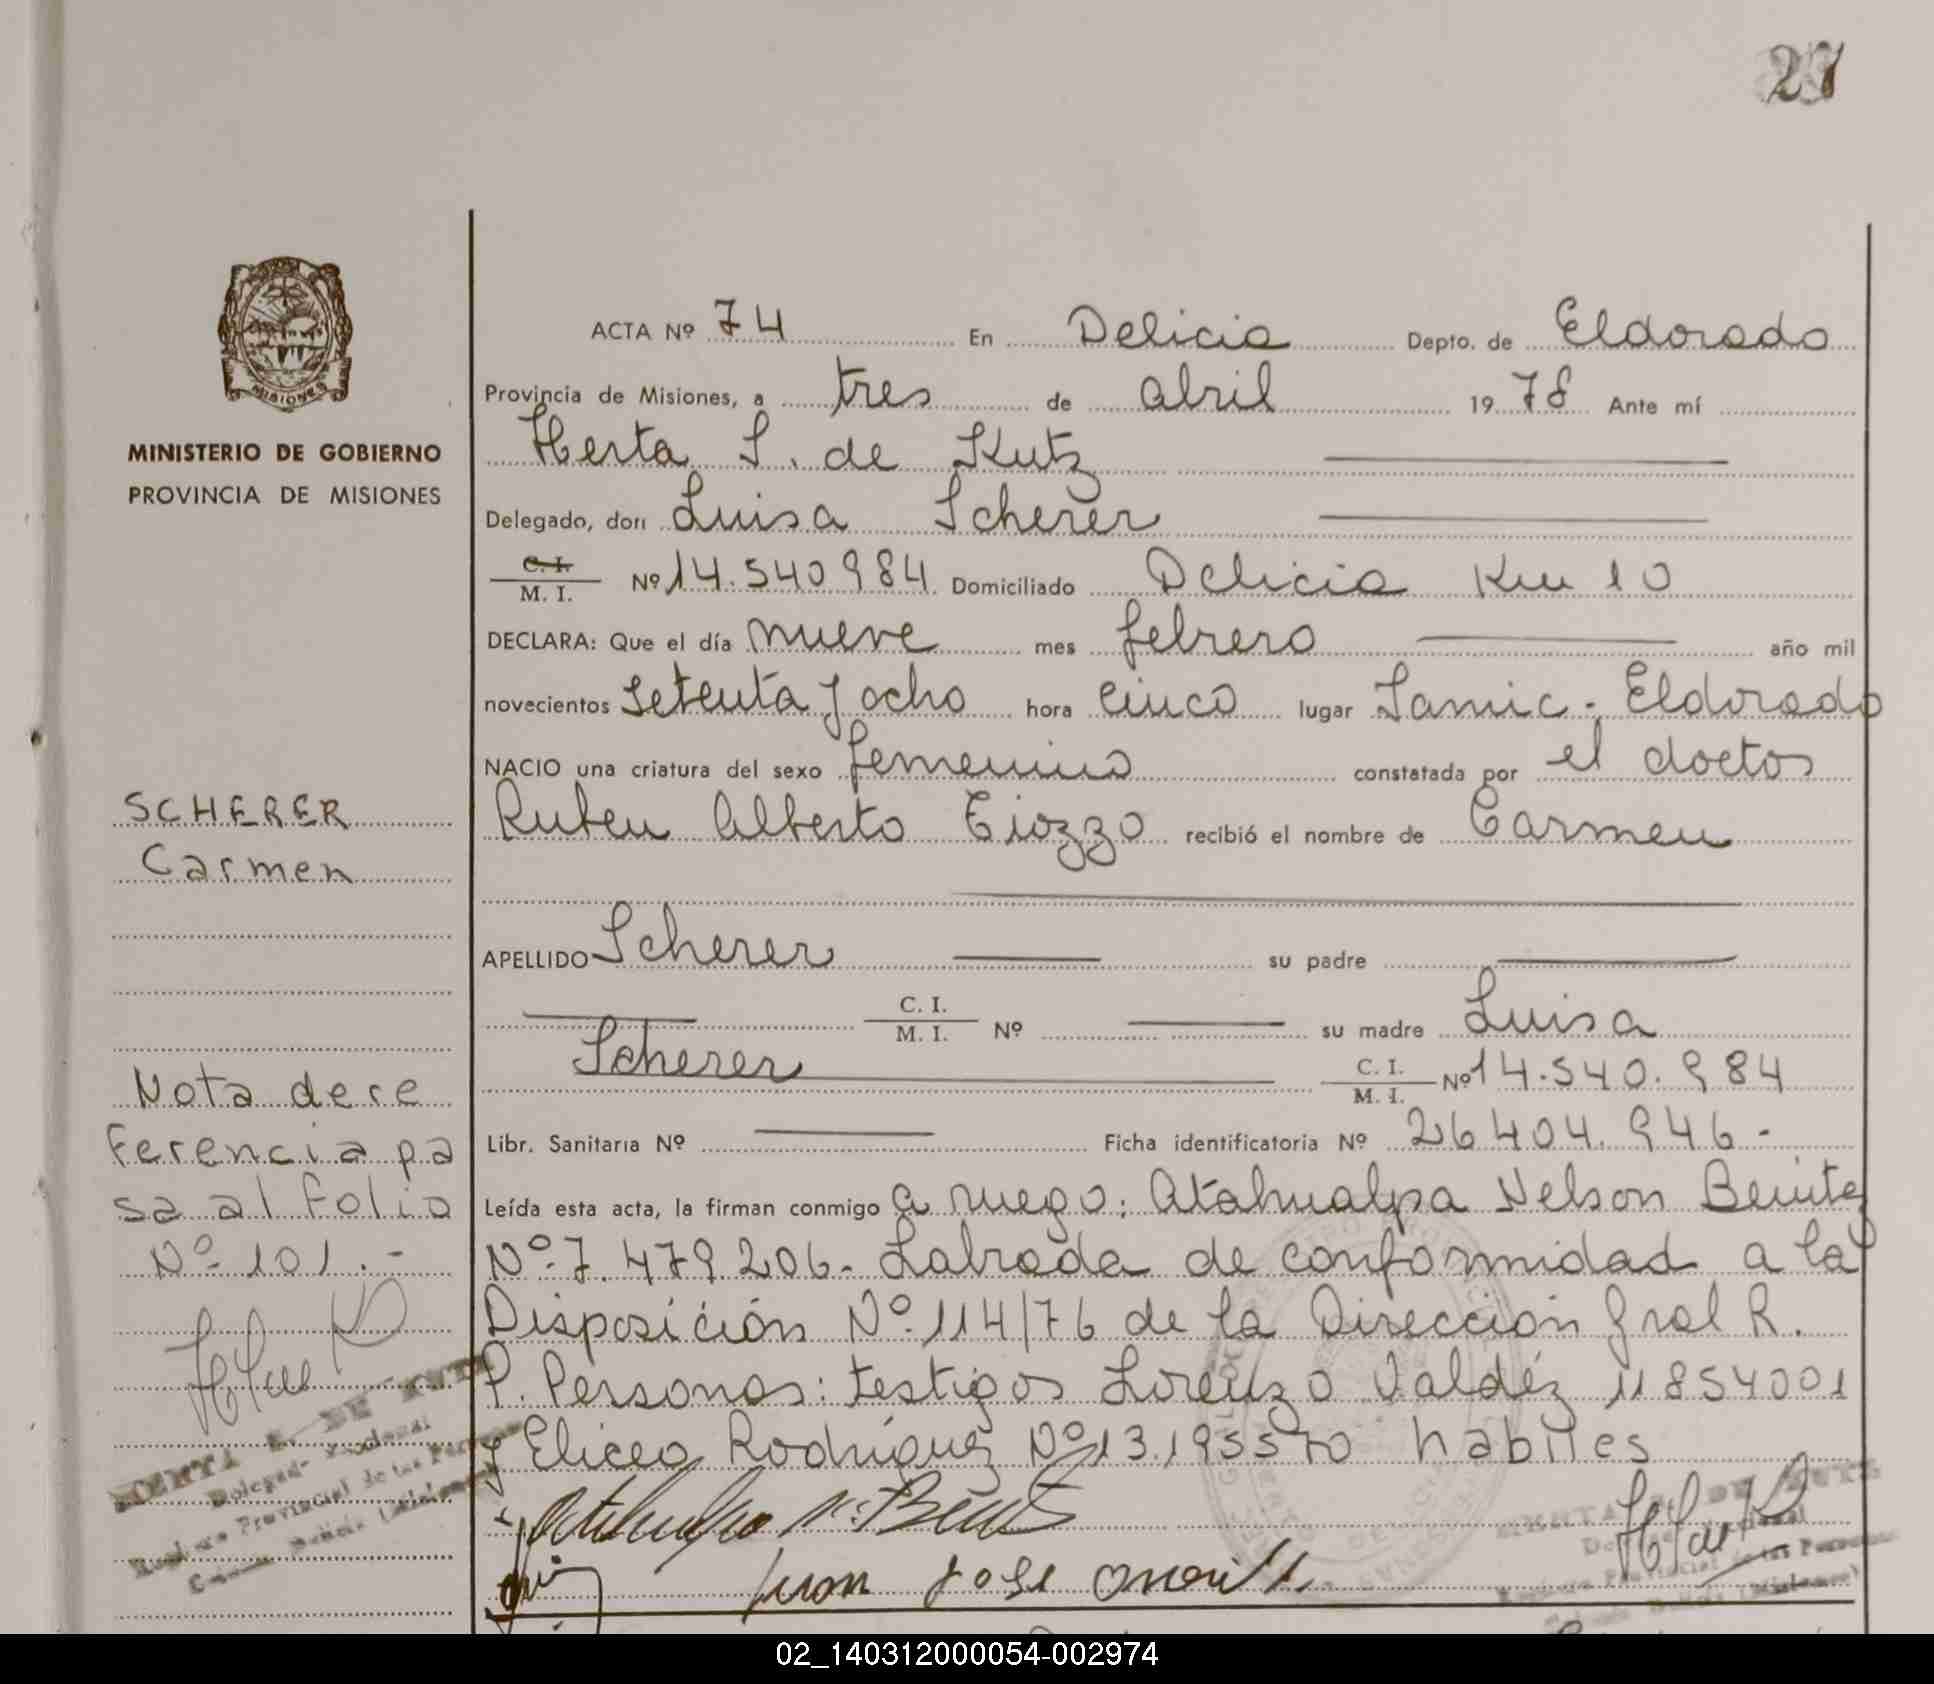 27
ACTA Nº 74 En Delicia Depto. de Eldorado
Provincia de Misiones, a tres de abril 1978 Ante mí
Herta S. de Kutz
Delegado, don Luisa Scherer
C. I. / M. I. Nº 14.540984 Domiciliado Delicia Km 10
DECLARA: Que el día nueve mes febrero año mil
novecientos setenta y ocho hora cinco lugar Samic - Eldorado
NACIO una criatura del sexo femenino constatada por el doctor
Ruben Alberto Tiozzo recibió el nombre de Carmen
APELLIDO Scherer su padre
C. I. / M. I. Nº su madre Luisa
Scherer C. I. / M. I. Nº 14.540.984
Libr. Sanitaria Nº Ficha identificatoria Nº 26404.946-
Leída esta acta, la firman conmigo a ruego: Atahualpa Nelson Benitez
Nº 7.479.206- Labrada de conformidad a la
Disposición Nº 114/76 de la Dirección Gral R.
P. Personas: testigos Lorenzo Valdéz 11854001
y Eliceo Rodríguez Nº 13.195570 habiles
Juan Jose
MINISTERIO DE GOBIERNO
PROVINCIA DE MISIONES
MISIONES
SCHERER
Carmen
Nota de re
ferencia pa
sa al folio
Nº 101.-
HERTA S. DE KUTZ
Delegada Seccional
Registro Provincial de las Personas
Colonia Delicia (Misiones)
02_140312000054-002974